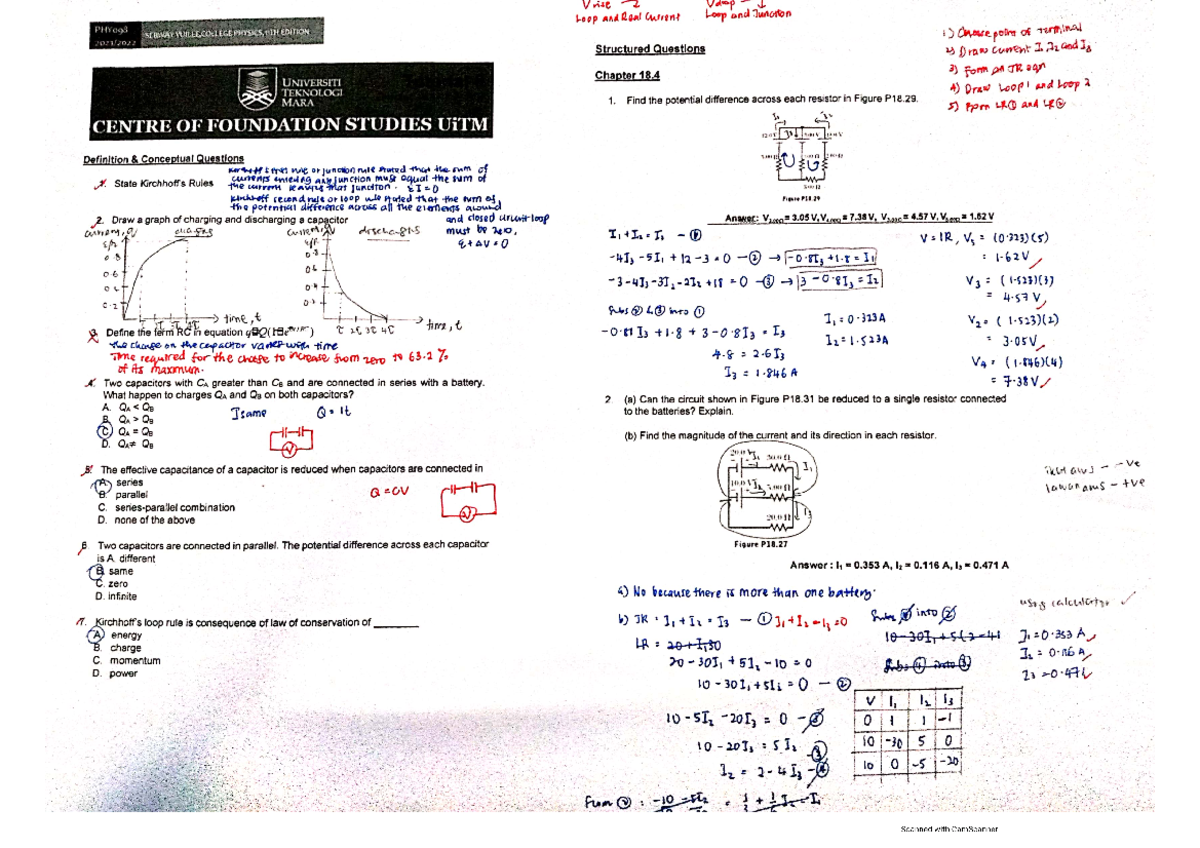 PHY098
2021/2022
SERWAY VUILLE, COLLEGE PHYSICS, 11TH EDITION
UNIVERSITI
TEKNOLOGI
MARA
CENTRE OF FOUNDATION STUDIES UiTM
Definition & Conceptual Questions
1. State Kirchhoff's Rules
Kirchhoff's first rule or junction rule stated that the sum of
currents entering any junction must equal the sum of
the current leaving that junction. ΣI=0
Kirchhoff second rule or loop rule stated that the sum of
the potential difference across all the elements around
and closed circuit loop
must be zero,
2. Draw a graph of charging and discharging a capacitor
charging
discharging
time, t
time, t
3. Define the term RC in equation
the charge on the capacitor varies with time
Time required for the charge to increase from zero to 63.2 %
of its maximum.
4. Two capacitors with CA greater than CB and are connected in series with a battery.
What happen to charges QA and QB on both capacitors?
A. QA < QB
B. QA > QB
C. QA = QB
D. QA≠ QB
I same Q = It
5. The effective capacitance of a capacitor is reduced when capacitors are connected in
A. series
B. parallel
C. series-parallel combination
D. none of the above
Q = CV
6. Two capacitors are connected in parallel. The potential difference across each capacitor
is A. different
B. same
C. zero
D. infinite
7. Kirchhoff's loop rule is consequence of law of conservation of ________
A. energy
B. charge
C. momentum
D. power
Loop and Real Current
Loop and Junction
Structured Questions
1) Choose point of terminal
2) Draw current I1 I2 and I3
3) Form an JR eqn
4) Draw Loop 1 and Loop 2
5) Form LR① and LR②
Chapter 18.4
1. Find the potential difference across each resistor in Figure P18.29.
Figure P18.29
Answer: V2.00Ω = 3.05 V, V4.00Ω = 7.38 V, V3.00Ω = 4.57 V, V5.00Ω = 1.62 V
I1 + I2 = I3 — ①
-4I3 - 5I1 + 12 - 3 = 0 — ② → -0.8I3 + 1.8 = I1
-3 - 4I3 - 3I2 - 2I2 + 18 = 0 — ③ → 3 - 0.8I3 = I2
Subs ② & ③ into ①
-0.8I3 + 1.8 + 3 - 0.8I3 = I3
4.8 = 2.6I3
I3 = 1.846 A
I1 = 0.323A
I2 = 1.523A
V = IR, V5 = (0.323)(5)
= 1.62V
V3 = (1.523)(3)
= 4.57 V
V2 = (1.523)(2)
= 3.05V
V4 = (1.846)(4)
= 7.38V
2. (a) Can the circuit shown in Figure P18.31 be reduced to a single resistor connected
to the batteries? Explain.
(b) Find the magnitude of the current and its direction in each resistor.
20.0 V 30.0 Ω
10.0 V 5.00 Ω
20.0 Ω
I1
I3
Figure P18.27
ikut arus - -ve
lawan arus - +ve
Answer : I1 = 0.353 A, I2 = 0.116 A, I3 = 0.471 A
a) No because there is more than one battery.
b) JR : I1 + I2 = I3 — ① I1 + I2 - I3 = 0
LR = 20 + I1 30
20 - 30I1 + 5I2 - 10 = 0
10 - 30I1 + 5I2 = 0 — ②
10 - 5I2 - 20I3 = 0 — ③
10 - 20I3 = 5I2
I2 = 2 - 4I3 — ④
Subs ④ into ②
Subs ④ into ③
using calculator
I1 = 0.353 A
I2 = 0.116 A
I3 = 0.471
V I1 I2 I3
0 1 1 -1
10 -30 5 0
10 0 -5 -20
From ② :
Scanned with CamScanner